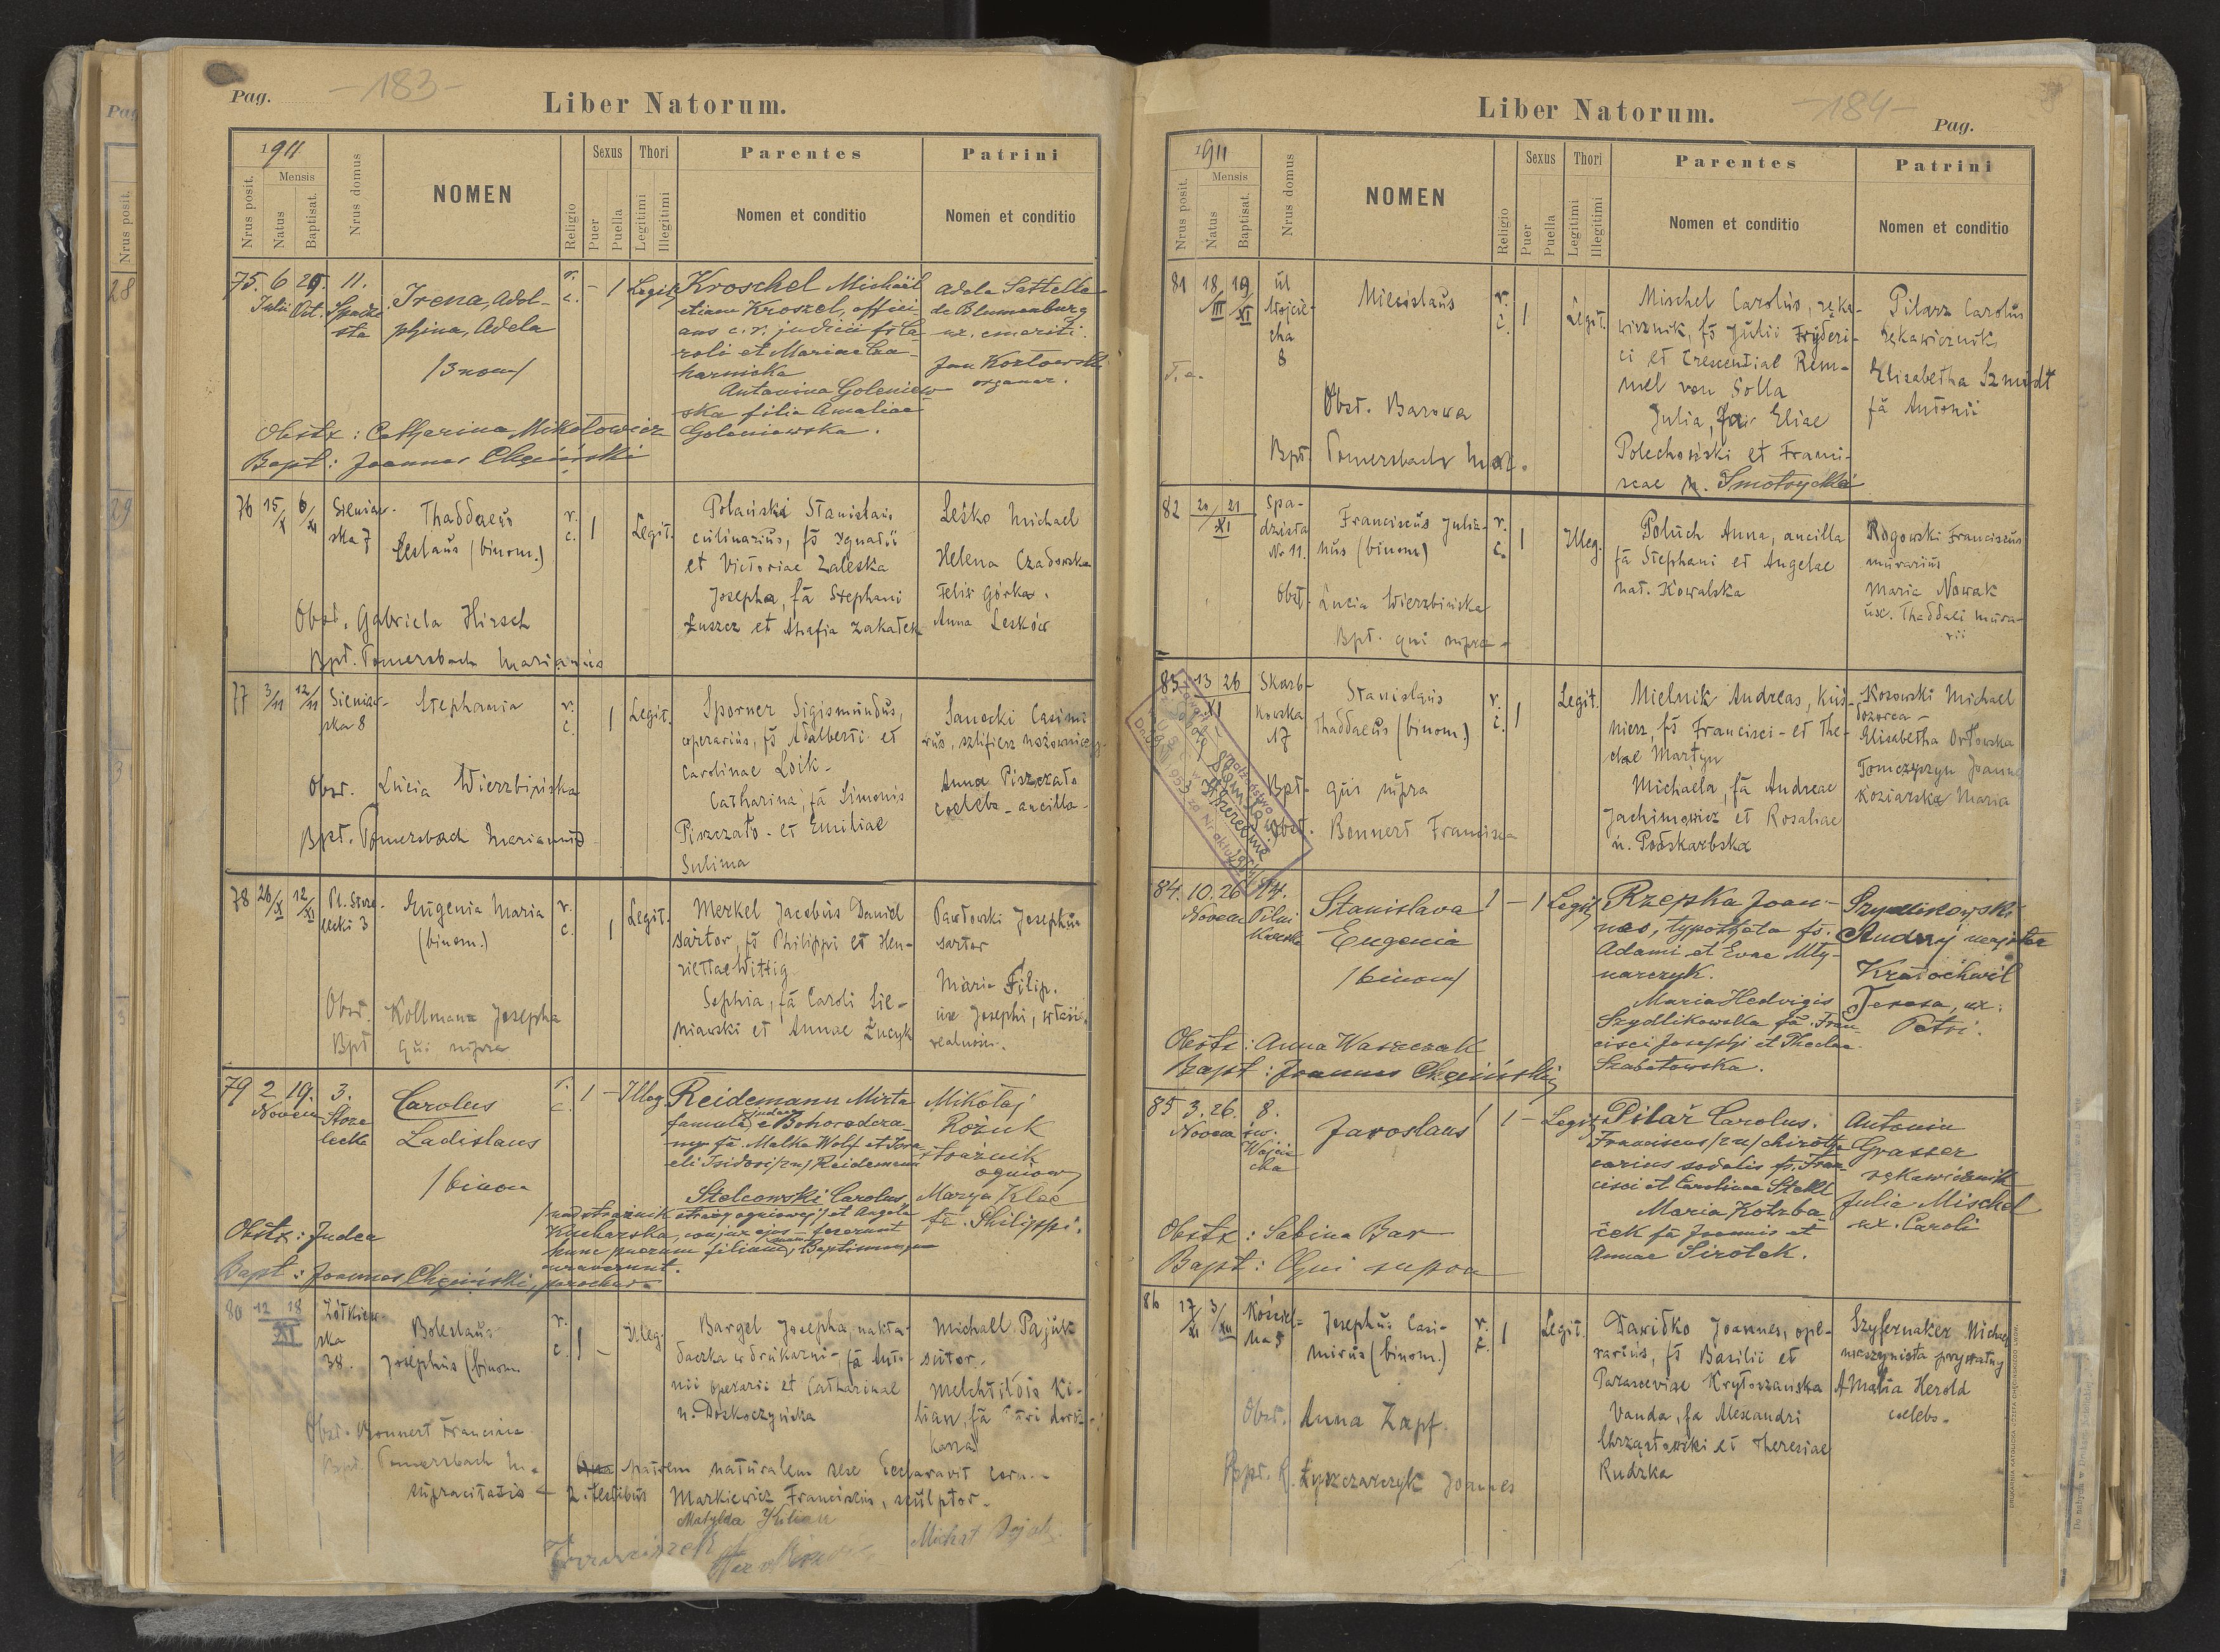 Pag.
-183-
Liber Natorum.
1911
Mensis
Nrus posit.
Natus
Baptisat.
Nrus domus
NOMEN
Religio
Sexus
Puer
Puella
Thori
Legitimi
Illegitimi
Parentes
Nomen et conditio
Patrini
Nomen et conditio
75. 6 29. 11.
Julii Oct. Spadzi
sta
Irena, Adol-
phina, Adela
/3 nom/
r.
c.
- 1 Legit
Kroschel Michaël
etiam Kroszel, offici
ans c. r. judicii fs Ca-
roli et Mariae Cza-
harniska
Antonina Goleniew
ska filia Amaliae
Goleniewska.
Adela Sattelle
de Blumenburg
ux. emeriti.
Jan Kozlowski
organar.
Obstx: Catharina Mikołowicz
Bapt: Joannes Chęciński
76 15/X 6/XI
Sieniaw-
ska 7
Thaddaeus
Ceslaus (binom.)
r.
c.
1
Legit.
Polański Stanislaus
culinarius, fs Ignatii
et Victoriae Zaleska
Josepha, fa Stephani
Łuszcz et Ahafia Zakałek
Leśko Michael
Helena Czadowska
Felix Górka.
Anna Leśków
Obst. Gabriela Hirsch
Bpt. Tomersbach Marianus
77 3/11 12/11
Sieniaw-
ska 8
Stephania
r.
c.
1 Legit.
Sporner Sigismundus,
operarius, fs Adalberti et
Carolinae Loik-
Catharina, fa Simonis
Piszczało - et Emiliae
Sulima
Sanocki Casimi
rus, szlifierz nożownic
Anna Piszczała
coelebs - ancilla-
Obst. Lucia Wierzbińska
Bpt. Tomersbach Marianus
78 26/X 12/XI
Pl. Strze-
lecki 3
Eugenia Maria
(binom.)
r.
c.
1 Legit.
Merkel Jacobus Daniel
sartor, fs Philippi et Hen-
riettae Wittig
Sophia, fa Caroli Sie-
niawski et Annae Łucyk
Pawłowski Josephus
sartor
Maria Filip.
ux Josephi, właśc.
realnosci.
Obst. Kollmann Josepha
Bpt qui supra
79 2 19. 3.
Novem Strze
lecka
Carolus
Ladislaus
/binom
r.
c.
1 - Illeg
Reidemann Mirta
famula judaea e Bohorodcza-
ny fa. Malka Wolf et Isra
eli Isidori/2n/ Reidemann
Stelcowski Carolus
/nadstrażnik straży ogniowej/ et Angela
Kucharska, conjux ejus - fecerunt
hunc puerum filium suum, Baptismum
curaverunt.
Mikołaj
Rożuk
strażnik
ogniowy
Marya Klee
fa. Philippi.
Obstx: Judea
Bapt: Joannes Chęciński, parochus
80 12 18
XI
Żółkiew-
ska
38.
Boleslaus
Josephus (binom.
r.
c. 1 -
Illeg.
Bargel Josepha, nakła-
daczka w drukarni-, fa Anto-
nii operarii et Catharinae
n. Doskoczyńska
Michael Pajuk
sutor.
Melchtildis Ki-
lian, fa
Obst. Bonnert Francisca
Bpt. Tomersbach M.
supracitatis
patrem naturalem sese declaravit coram
2. testibus Markiewicz Franciscus, sculptor.
Matylda Kilian
Franciszek
Michał Pajuk
Liber Natorum.
-184-
Pag.
1911
Mensis
Nrus posit.
Natus
Baptisat.
Nrus domus
NOMEN
Religio
Sexus
Puer
Puella
Thori
Legitimi
Illegitimi
Parentes
Nomen et conditio
Patrini
Nomen et conditio
81 18/III 19/XI
ul
Wojcie-
cha
8
Miecislaus
r.
c. 1
Legit.
Mischel Carolus, ręka-
wicznik, fs Julii Fryderi-
ci et Crescentiae Rem-
mel von Solla
Julia, fa Eliae
Polechoński et Franci-
scae n. Smotrycka
Pilarz Carolus
rękawicznik
Elisabetha Szmidt
fa Antonii
Obst. Barowa
Bpt. Tomersbach Mar.
82 20 21
XI
Spa-
dzista
No 11.
Franciscus Julia-
nus (binom)
r.
c. 1
Illeg.
Poluch Anna, ancilla
fa Stephani et Angelae
nat. Kowalska
Rogowski Franciscus
murarius
Maria Nowak
ux. Thaddaei mura-
rii
Obst. Lucia Wierzbińska
Bpt. qui supra-
83 13 26
XI
Skarb-
kowska
17
Stanislaus
Thaddaeus (binom.)
r.
c. 1
Legit.
Mielnik Andreas, kuś-
nierz, fs Francisci - et The-
clae Martyn
Michaela, fa Andreae
Jachimowicz et Rosaliae
n. Podskarbska
Kosowski Michael
dozorca-
Elisabetha Orłowska
Tomczyszyn Joanna
Koziarska Maria
Bpt. qui supra
Obst. Bonnert Francisca
84. 10. 26 14.
Novem Pilni
karska
Stanislava
Eugenia
/binom/
1 - 1 Legit
Rzepka Joan-
nes, typotheta fs.
Adami et Evae Mły-
narczyk.
Maria Hedvigis
Szydlikowska fa. Fran
cisci Josephi et Theclae
Szabatowska.
Szydlikowski
Andrzej
Kratochwil
Teresa, ux.
Petri.
Obstx: Anna Waszczak
Bapt: Joannes Chęciński
85 3. 26. 8.
Novem św.
Wojcie
cha
Jaroslaus
1 1 - Legit
Pilař Carolus.
Franciscus/2n/ chirothe
carius sodalis fs. Fran
cisci et Carolinae Stekl
Maria Kotrba
ček fa Joannis et
Annae Sirotek.
Antonin
Grasser
rękawicznik
Julia Mischel
ux. Caroli
Obstx: Sabina Bar
Bapt: Qui supra
86 17/XI 3/XII
Kościel-
na 5
Josephus Casi-
mirus (binom.)
r.
c. 1
Legit.
Dawidko Joannes, ope-
rarius, fs Basilii et
Parasceviae Kryłoszańska
Vanda, fa Alexandri
Chrząstowski et Theresiae
Rudzka
Szyfernaker Michael
maszynista prywatny
Amalia Herold
coelebs-
Obst. Anna Zapf.
Bpt. Łyszczarczyk Joannes